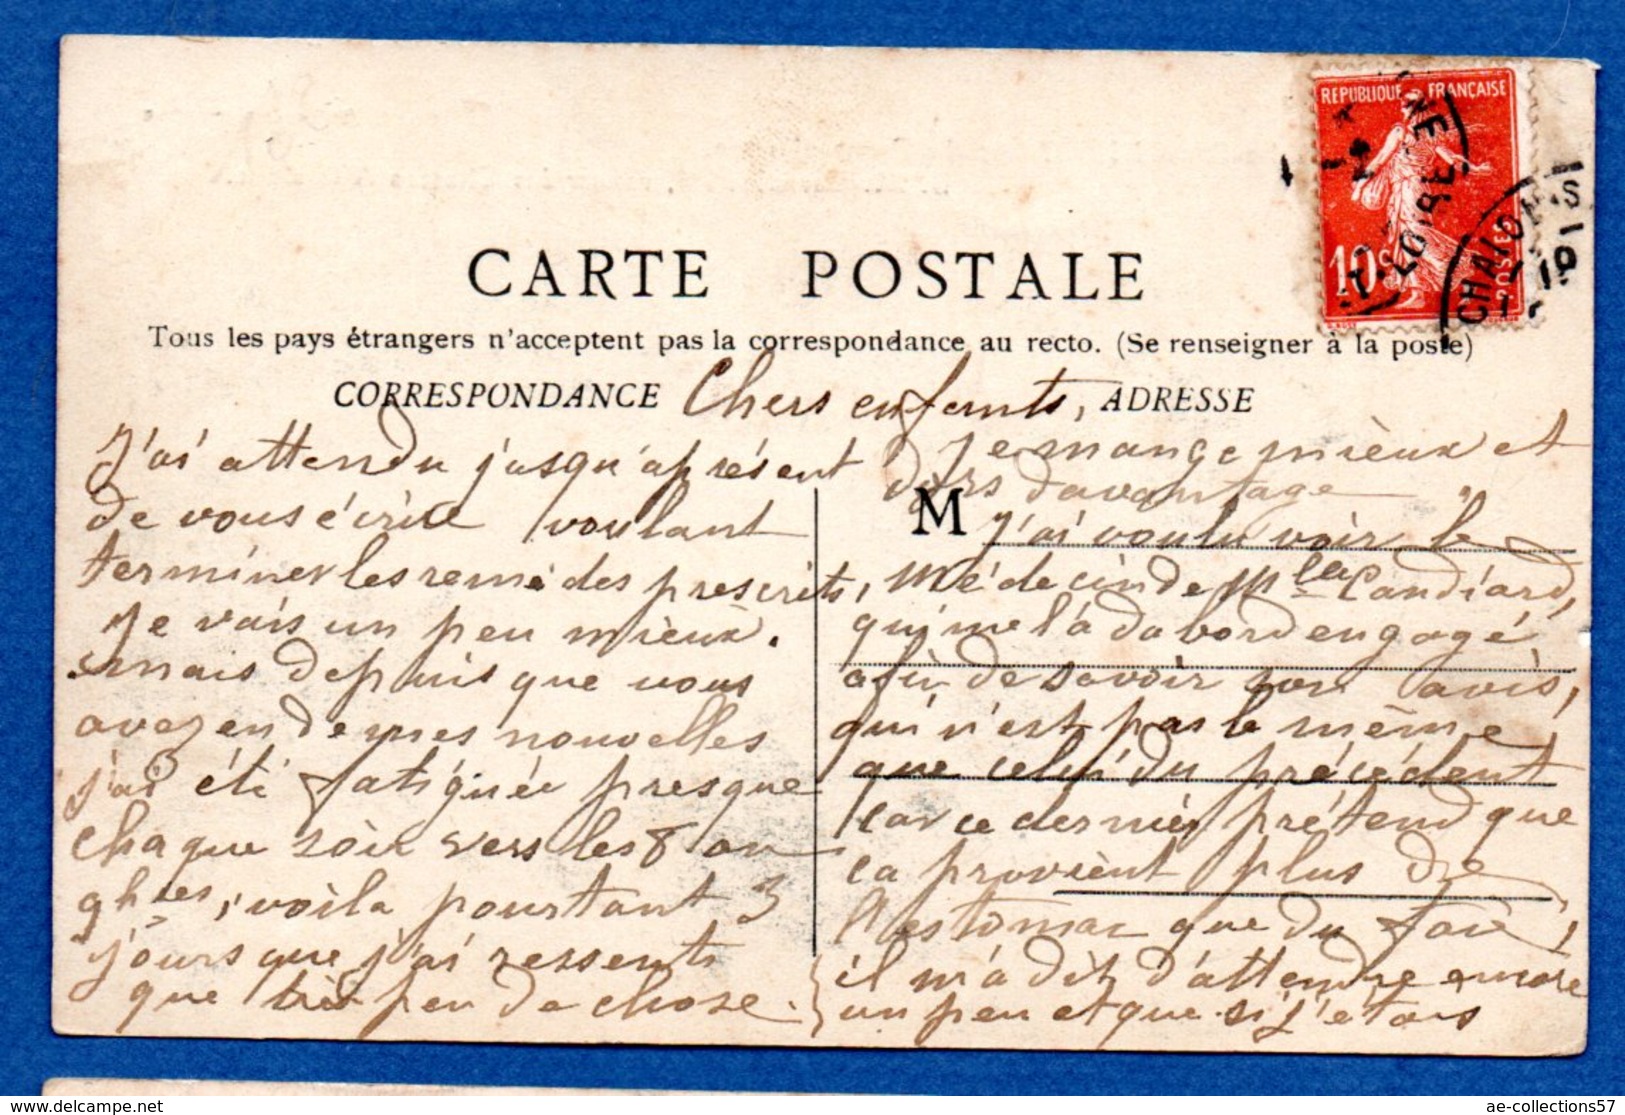 REPUBLIQUE FRANÇAISE
10c
POSTES
CARTE POSTALE
Tous les pays étrangers n'acceptent pas la correspondance au recto. (Se renseigner à la poste)
CORRESPONDANCE
Chers enfants,
ADRESSE
J'ai attendu jusqu'aprésent
de vous écrire voulant
terminer les remèdes prescrits,
Je vais un peu mieux.
mais depuis que vous
avez en de mes nouvelles
j'ai été fatiguée presque
chaque soir vers les 8 ou
9hres, voila pourtant 3
jours que j'ai ressenti
que très peu de chose.
Je mange mieux et
dors davantage
M
J'ai voulu voir le
médecin de Mlle Candiard,
qui me l'a dabord engagé,
afin de savoir son avis,
qui n'est pas le même
que celui du précédent
car ce dernier prétend que
ca provient plus de
l'estomac que du foie,
il m'a dit d'attendre encore
un peu et que si j'etais
ae-collections57